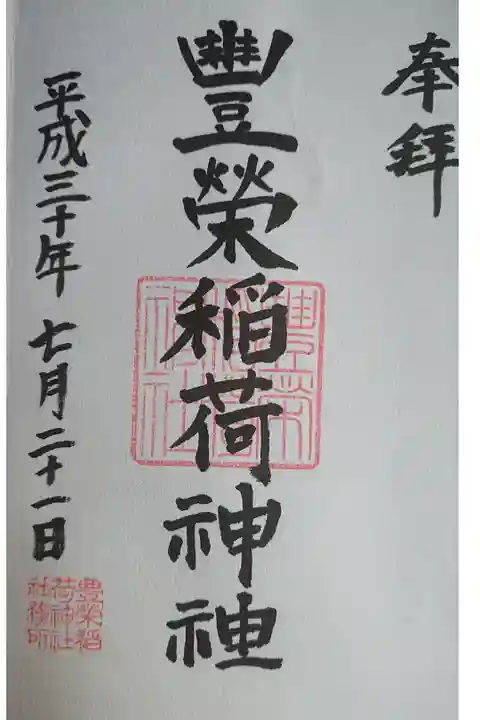 奉拝
豐榮稲荷神社
平成三十年七月二十一日
豊榮稲荷神社
豊榮稲
荷神社
社務所